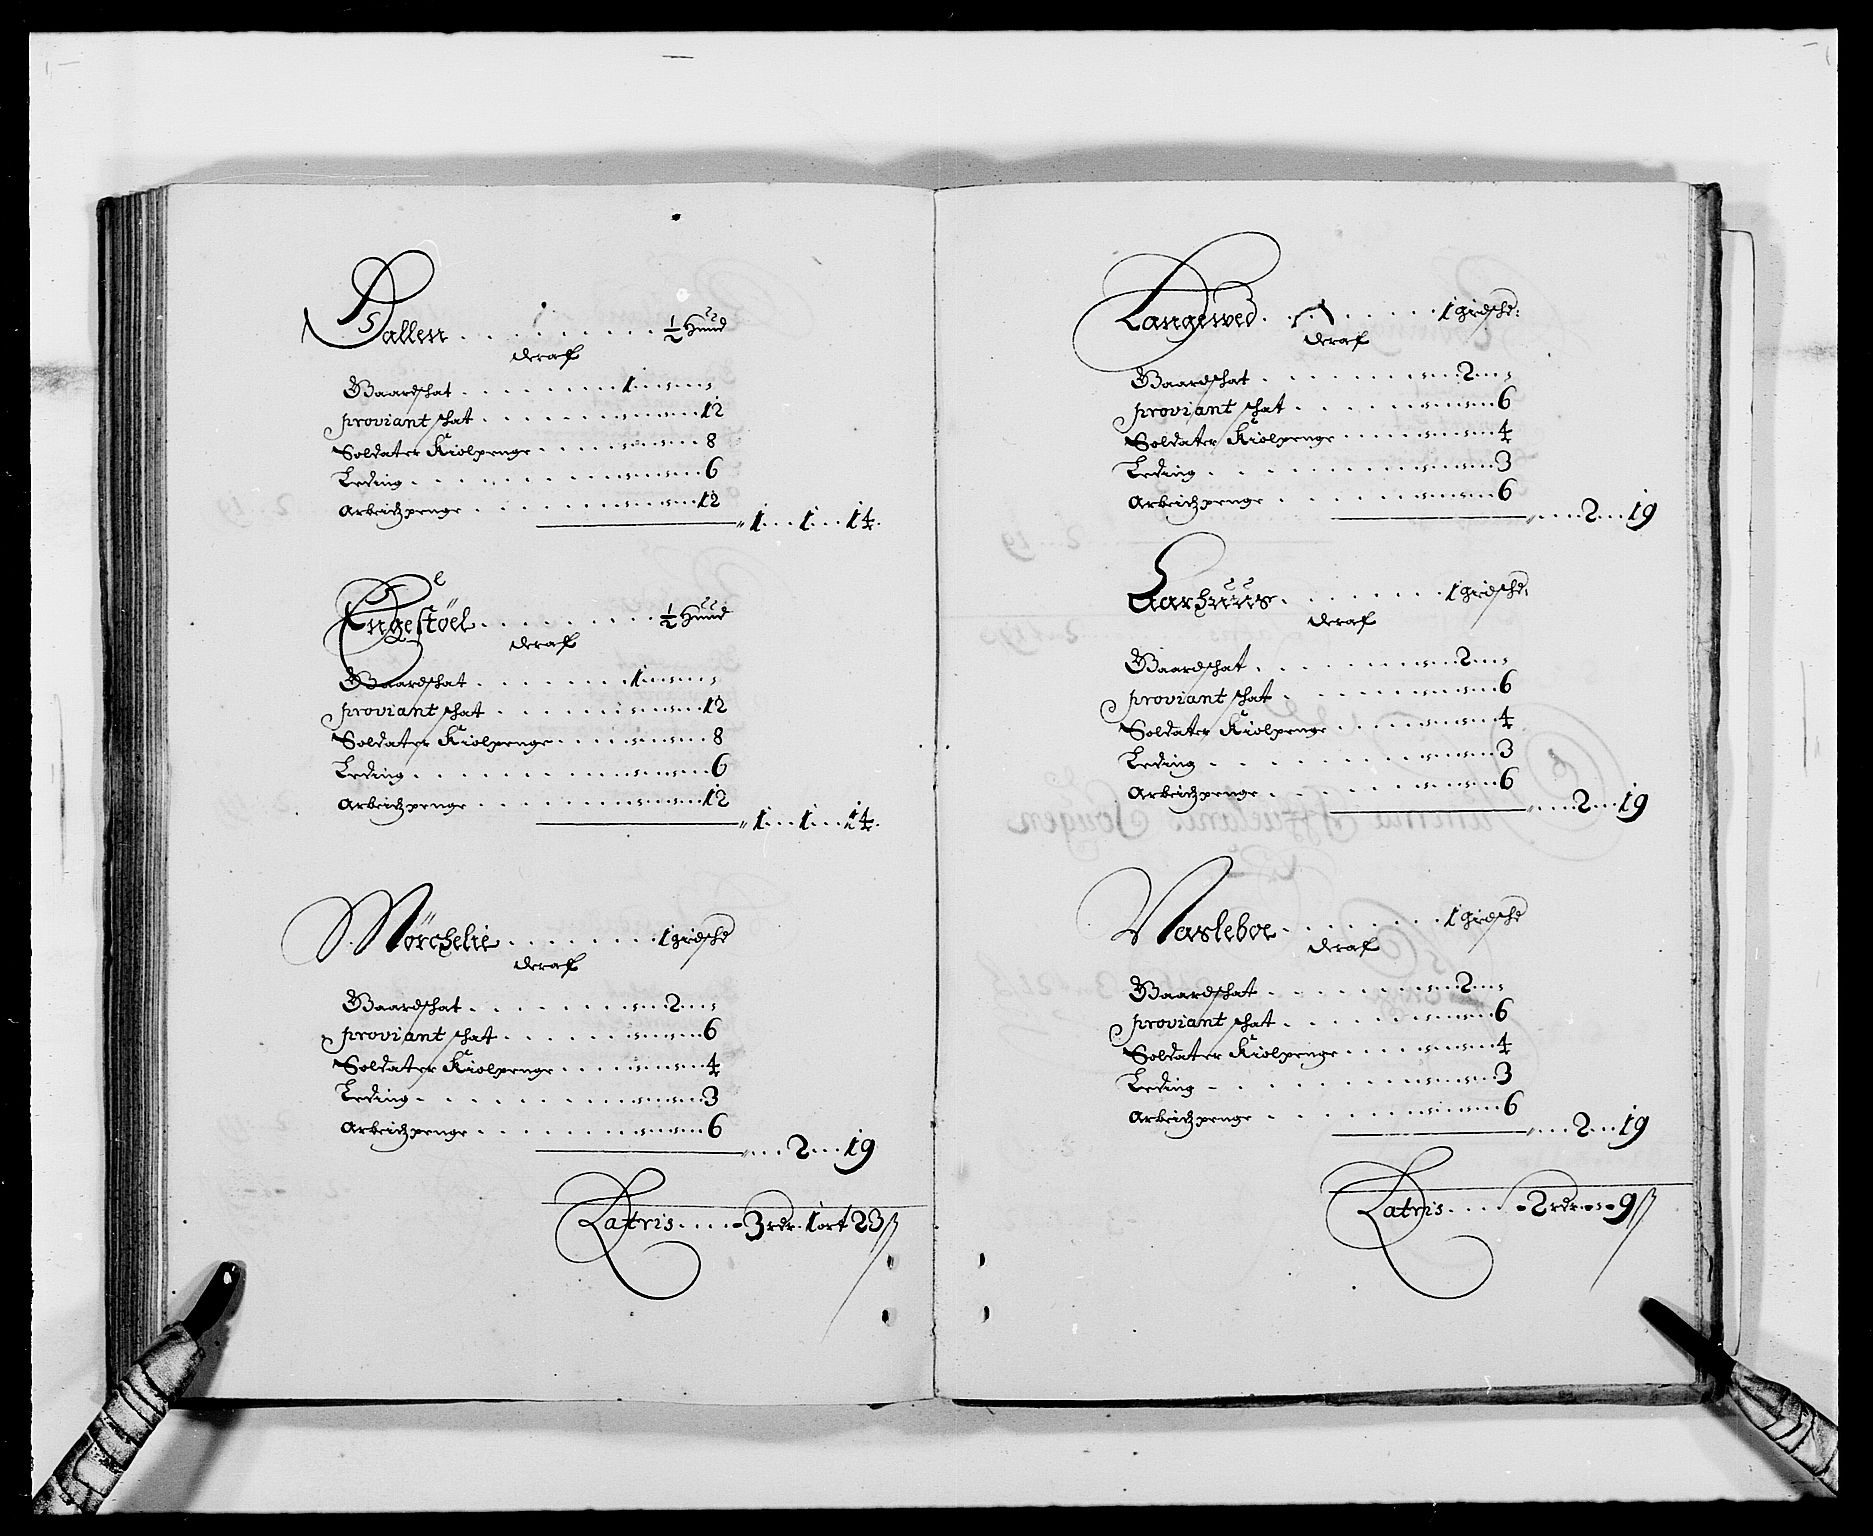 Dallen . . . . . . . . ½ Huud
deraf
Gaardschat . . . . . . 1 . . . .
proviant schat . . . . . . 12
Soldater Kiolpenge . . . . . . 8
Leding . . . . . . 6
Arbeidzpenge . . . . . . 12
1 . . . 1 . . . 14.
Engestöel . . . . . . . . ½ Huud
deraf
Gaardschat . . . . . . 1 . . . .
proviant schat . . . . . . 12
Soldater Kiolpenge . . . . . . 8
Leding . . . . . . 6
Arbeidzpenge . . . . . . 12
1 . . . 1 . . . 14.
Mörchelie . . . . . . . 1 gridsche
deraf
Gaardschat . . . . . . 2 . . .
proviant schat . . . . . . 6
Soldater Kiolpenge . . . . . . 4
Leding . . . . . . 3
Arbeidzpenge . . . . . . 6
2 . . . 19
Latris . . . . 3 rdr. 1 ort 23 ß
Langesved . . . . . . . 1 gridsche:
deraf
Gaardschat . . . . . . 2 . . .
proviant schat . . . . . . 6
Soldater Kiolpenge . . . . . . 4
Leding . . . . . . 3
Arbeidzpenge . . . . . . 6
2 . . . 19
Aarhuus . . . . . . . 1 gridsche:
deraf
Gaardschat . . . . . . 2 . . .
proviant schat . . . . . . 6
Soldater Kiolpenge . . . . . . 4
Leding . . . . . . 3
Arbeidzpenge . . . . . . 6
2 . . . 19
Wasleboe . . . . . . . 1 gridsche
deraf
Gaardschat . . . . . . 2 . . .
proviant schat . . . . . . 6
Soldater Kiolpenge . . . . . . 4
Leding . . . . . . 3
Arbeidzpenge . . . . . . 6
2 . . . 19
Latris . . . . 2 rdr. - 9 ß